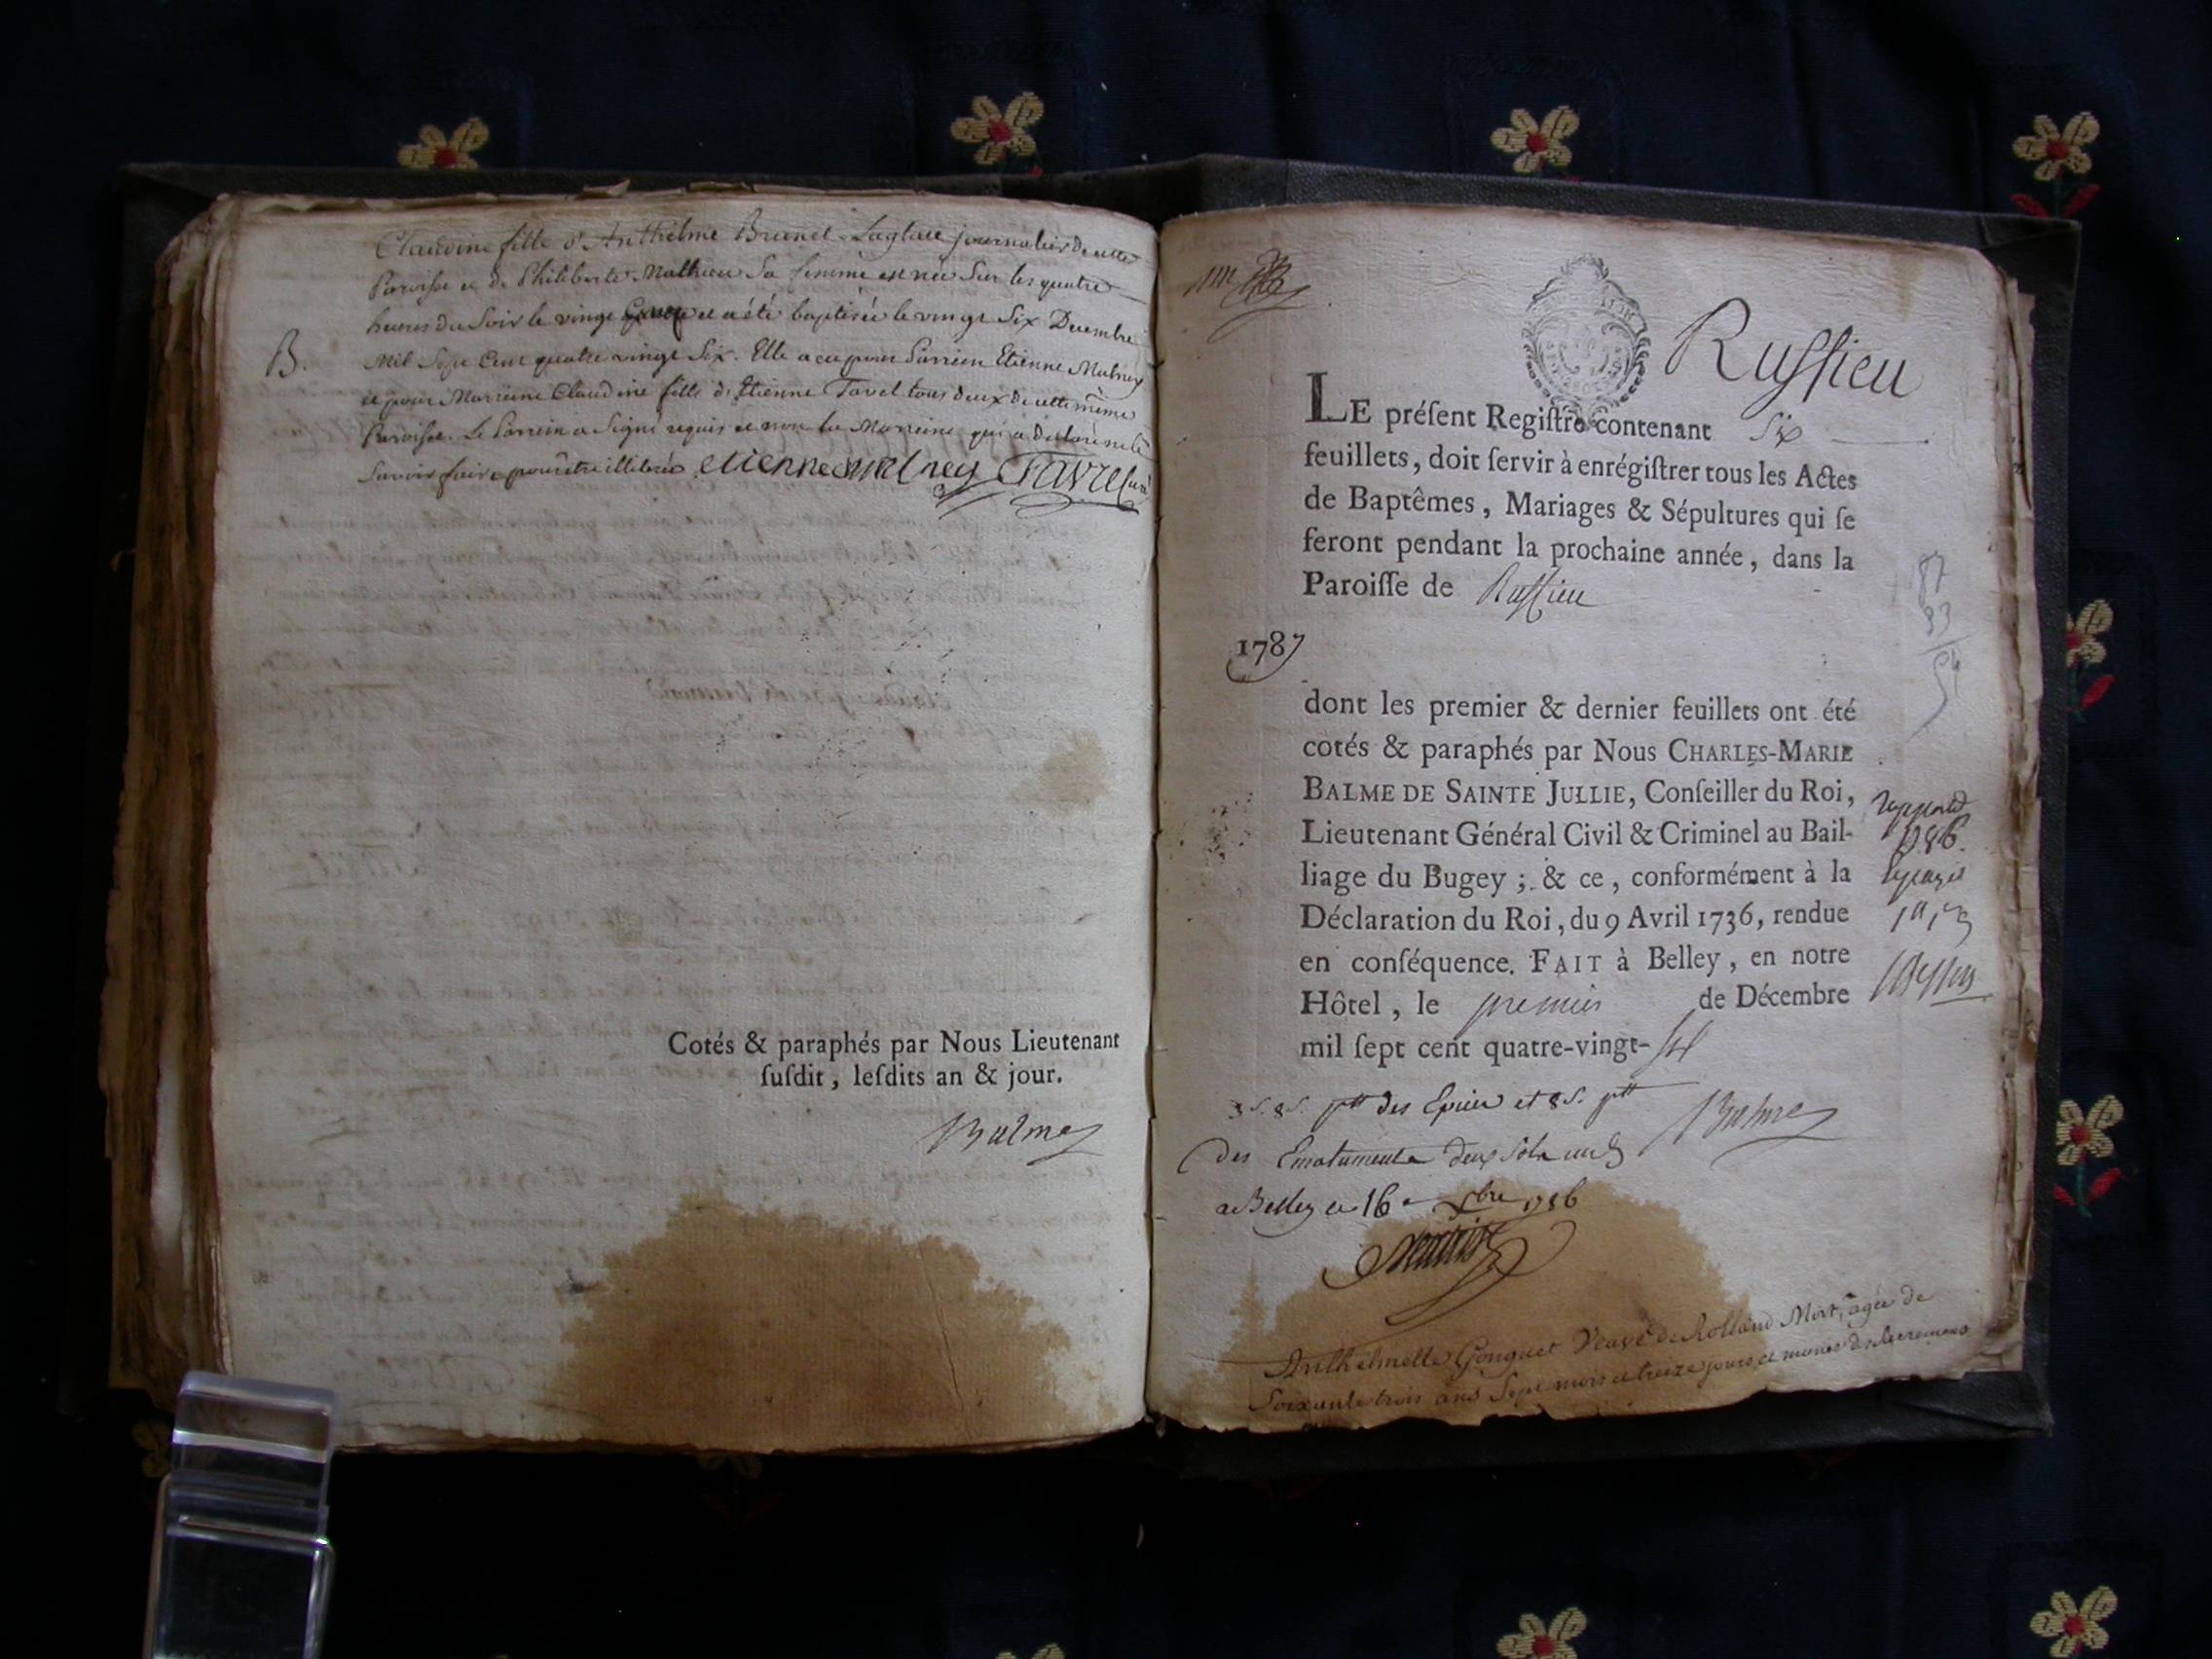 Claudine fille d'Anthelme Brunet Laglaie journalier de cette
Paroisse et de Philiberte Mathieu Sa femme est née Sur les quatre
heures du Soir le vingt et a été baptisée le vingt Six Decembre
B. Mil Sept Cent quatre vingt Six. Elle a eu pour Parrein Etienne
et pour Marreine Claudine fille d'Etienne Tavel tous deux de cette même
Paroisse. Le Parrein a Signé requis et non la Marreine qui a declaré ne le
Savoir faire pour être illiterée etienne Favre Curé
Cotés & paraphés par Nous Lieutenant
ſuſdit, leſdits an & jour.
Balme
Ruffieu
LE préſent Regiſtre contenant Six
feuillets, doit ſervir à enrégiſtrer tous les Actes
de Baptêmes, Mariages & Sépultures qui ſe
feront pendant la prochaine année, dans la
Paroiſſe de Ruffieu
1787
87
33
54
dont les premier & dernier feuillets ont été
cotés & paraphés par Nous CHARLES-MARIE
BALME DE SAINTE JULLIE, Conſeiller du Roi,
Lieutenant Général Civil & Criminel au Bail-
liage du Bugey ; & ce, conformément à la
Déclaration du Roi, du 9 Avril 1736, rendue
en conſéquence. FAIT à Belley, en notre
Hôtel, le premier de Décembre
mil ſept cent quatre-vingt-six
des Epices et 8 s.
Balme
des Emoluments deux sols
a Belley le 16 Xbre 1786
Anthelmette Gonguet Veuve de Rolland Mort, agée de
Soixante trois ans Sept mois et treize jours et munie des Sacremens